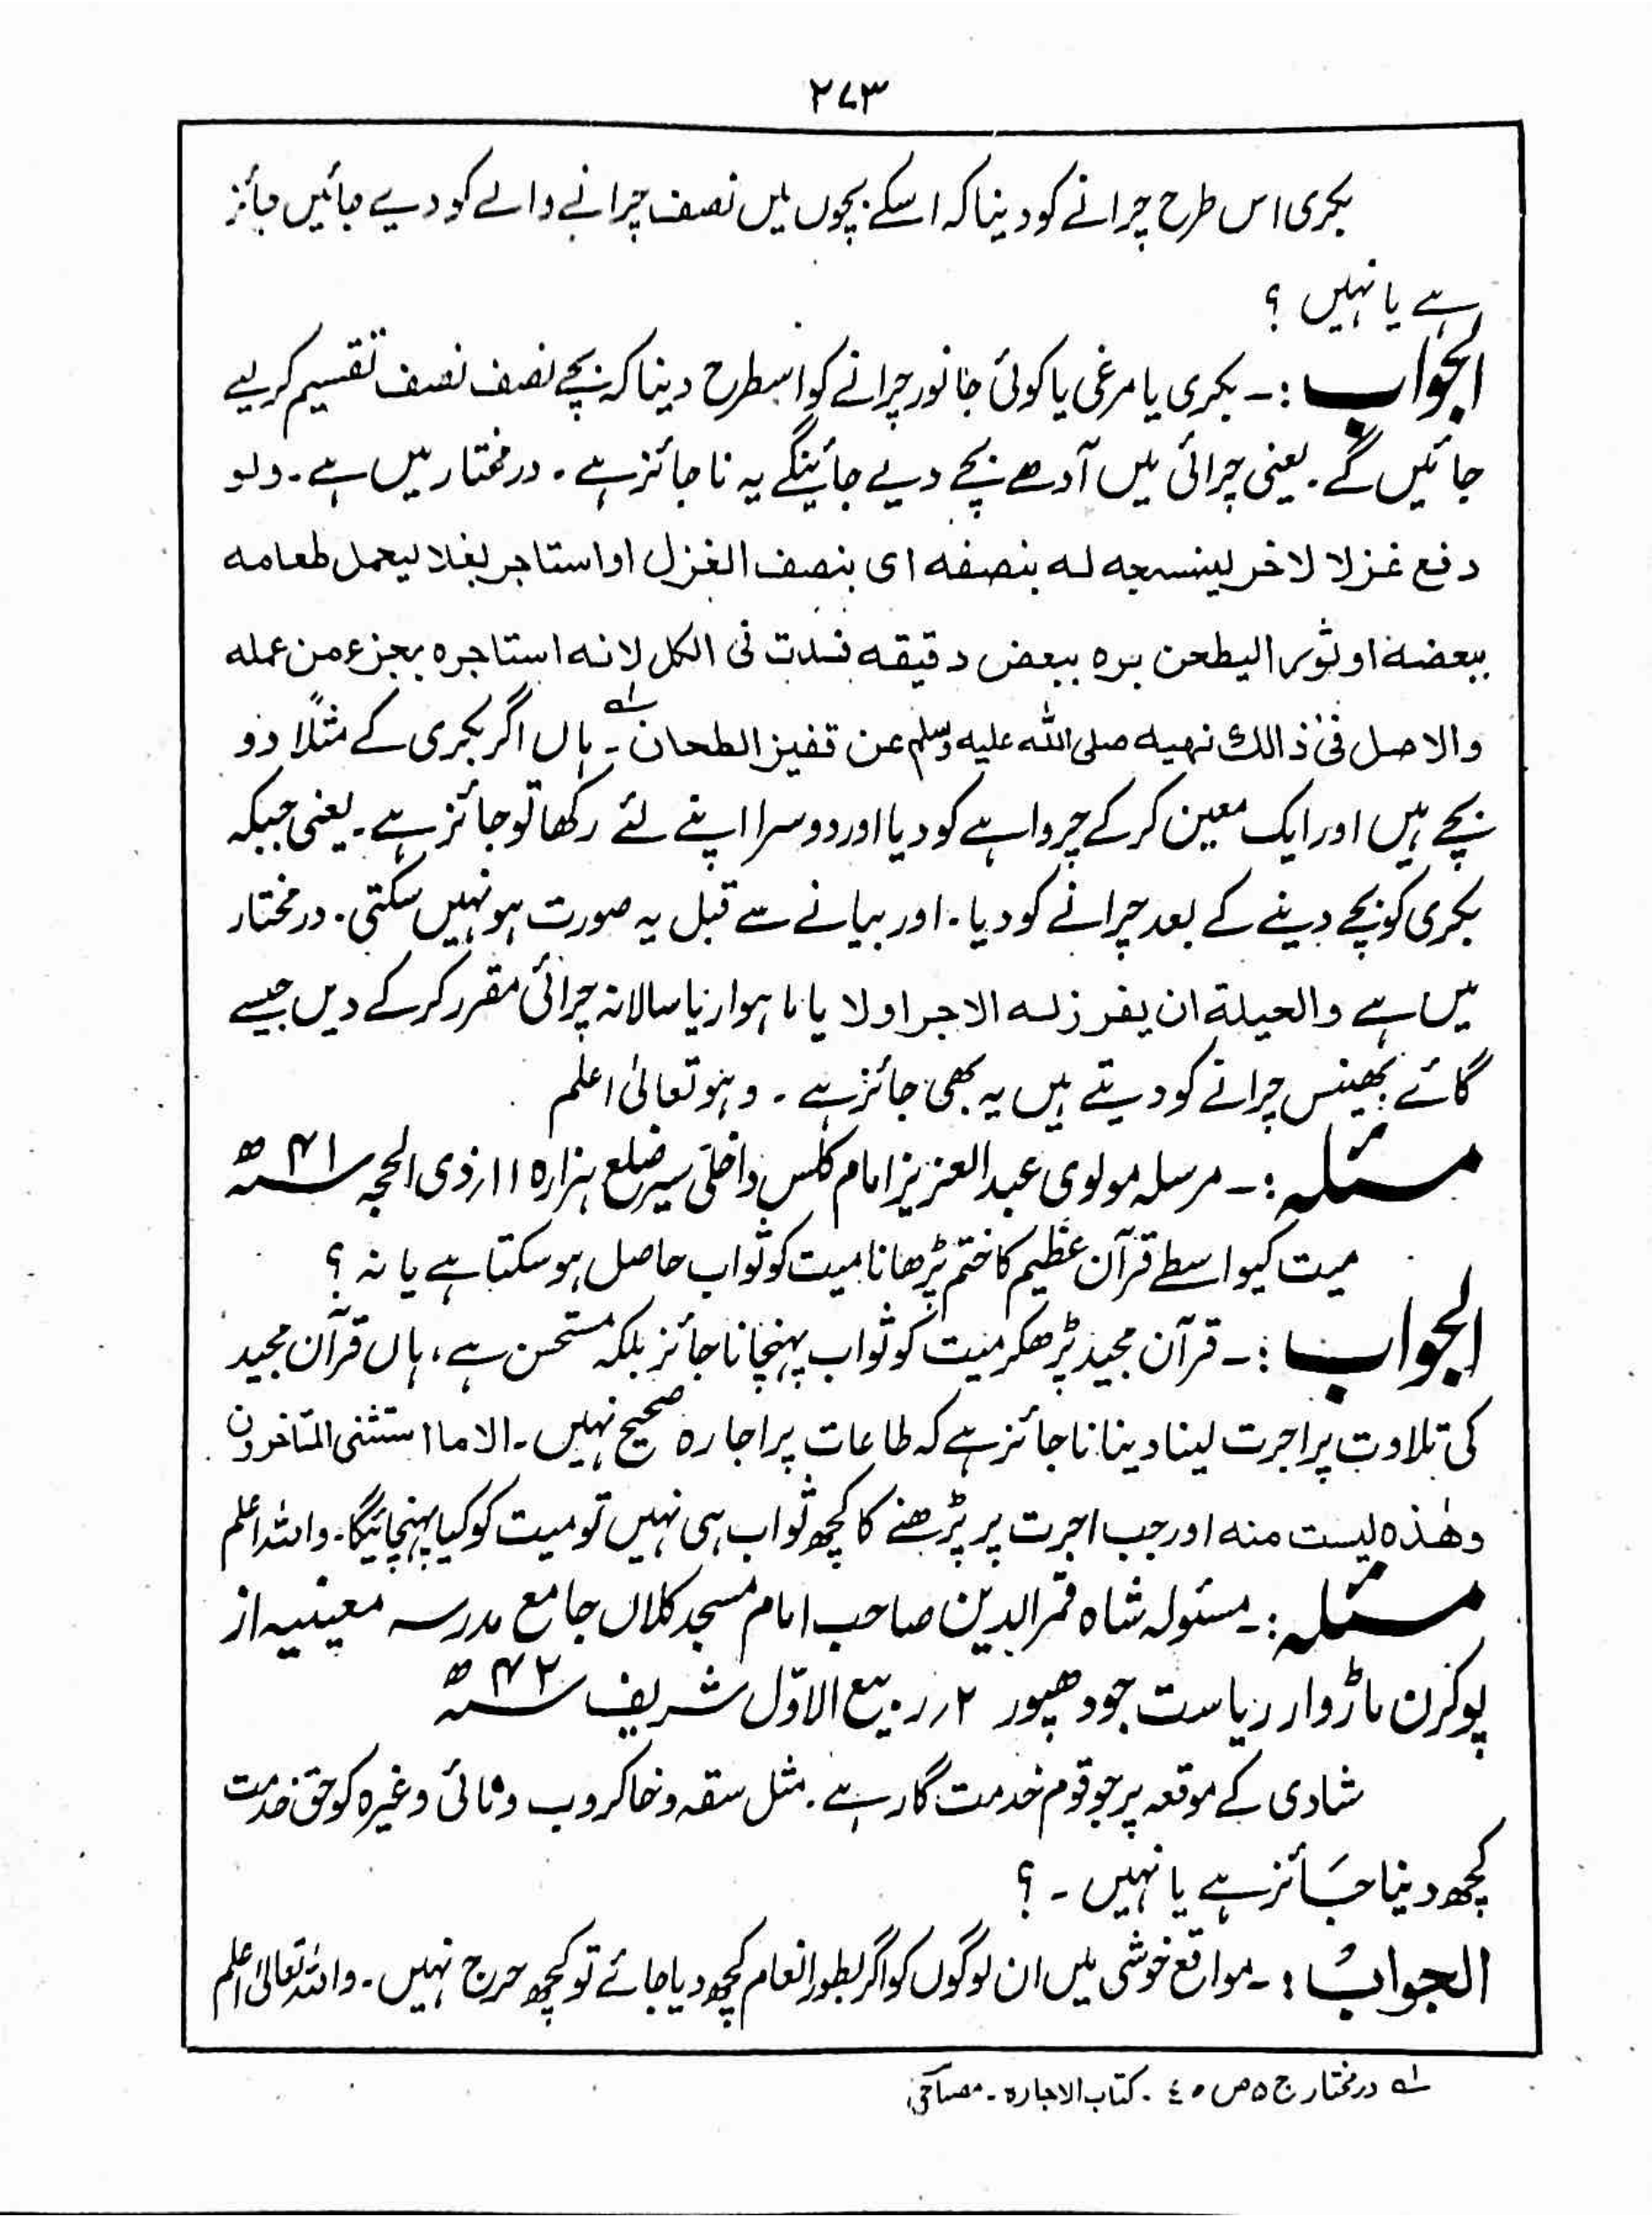 ۲۷۳
بکری اس طرح چرانے کو دینا کہ اسکے بچوں میں نصف چرانے والے کو دیے جائیں جائز
ہے یا نہیں ؟
الجواب :۔ بکری یا مرغی یا کوئی جانور چرانے کو اسطرح دینا کہ بچے نصف نصف تقسیم کرلیے
جائیں گے۔ یعنی چرائی میں آدھے بچے دیے جائینگے یہ ناجائز ہے ۔ درمختار میں ہے۔ ولو
دفع غزلا لاخر لینسجه له بنصفه ای بنصف الغزل او استاجر بغلا لیحمل طعامه
ببعضه او ثورا لیطحن بره ببعض دقیقه فسدت فی الکل لانه استاجره بجزء من عمله
والاصل فی ذالك نهیه صلی الله علیه وسلم عن قفیز الطحان ؂۱ ۔ ہاں اگر بکری کے مثلاً دو
بچے ہیں اور ایک معین کرکے چرواہے کو دیا اور دوسرا اپنے لئے رکھا تو جائز ہے۔ یعنی جبکہ
بکری کو بچے دینے کے بعد چرانے کو دیا ۔ اور بیانے سے قبل یہ صورت ہو نہیں سکتی۔ درمختار
میں ہے والحیلة ان یفرز له الاجر اولا یا ماہوار یا سالانہ چرائی مقرر کرکے دیں جیسے
گائے بھینس چرانے کو دیتے ہیں یہ بھی جائز ہے ۔ وہو تعالیٰ اعلم
مسئلہ :۔ مرسلہ مولوی عبدالعزیز امام کلس داخلی سیر ضلع ہزارہ ۱۱؍ ذی الحجہ سنہ ۴۱ھ
میت کیواسطے قرآن عظیم کا ختم پڑھانا میت کو ثواب حاصل ہوسکتا ہے یا نہ ؟
الجواب :۔ قرآن مجید پڑھکر میت کو ثواب پہنچانا جائز بلکہ مستحسن ہے، ہاں قرآن مجید
کی تلاوت پر اجرت لینا دینا ناجائز ہے کہ طاعات پر اجارہ صحیح نہیں۔ الا ما استثنی المتاخرون
وهٰذه لیست منه اور جب اجرت پر پڑھنے کا کچھ ثواب ہی نہیں تو میت کو کیا پہنچائیگا۔ واللہ اعلم
مسئلہ :۔ مسئولہ شاہ قمرالدین صاحب امام مسجد کلاں جامع مدرسہ معینیہ از
پوکرن ماڑوار ریاست جودھپور ۲؍ ربیع الاوّل شریف سنہ ۴۲ھ
شادی کے موقعہ پر جو قوم خدمت گار ہے ۔ مثل سقہ و خاکروب و نائی وغیرہ کو حق خدمت
کچھ دینا جائز ہے یا نہیں ۔ ؟
الجواب :۔ مواقع خوشی میں ان لوگوں کو اگر بطور انعام کچھ دیا جائے تو کچھ حرج نہیں۔ واللہ تعالیٰ اعلم
؂۱ درمختار ج ۵ ص ۴۰ ۔ کتاب الاجارہ ۔ مصباحی